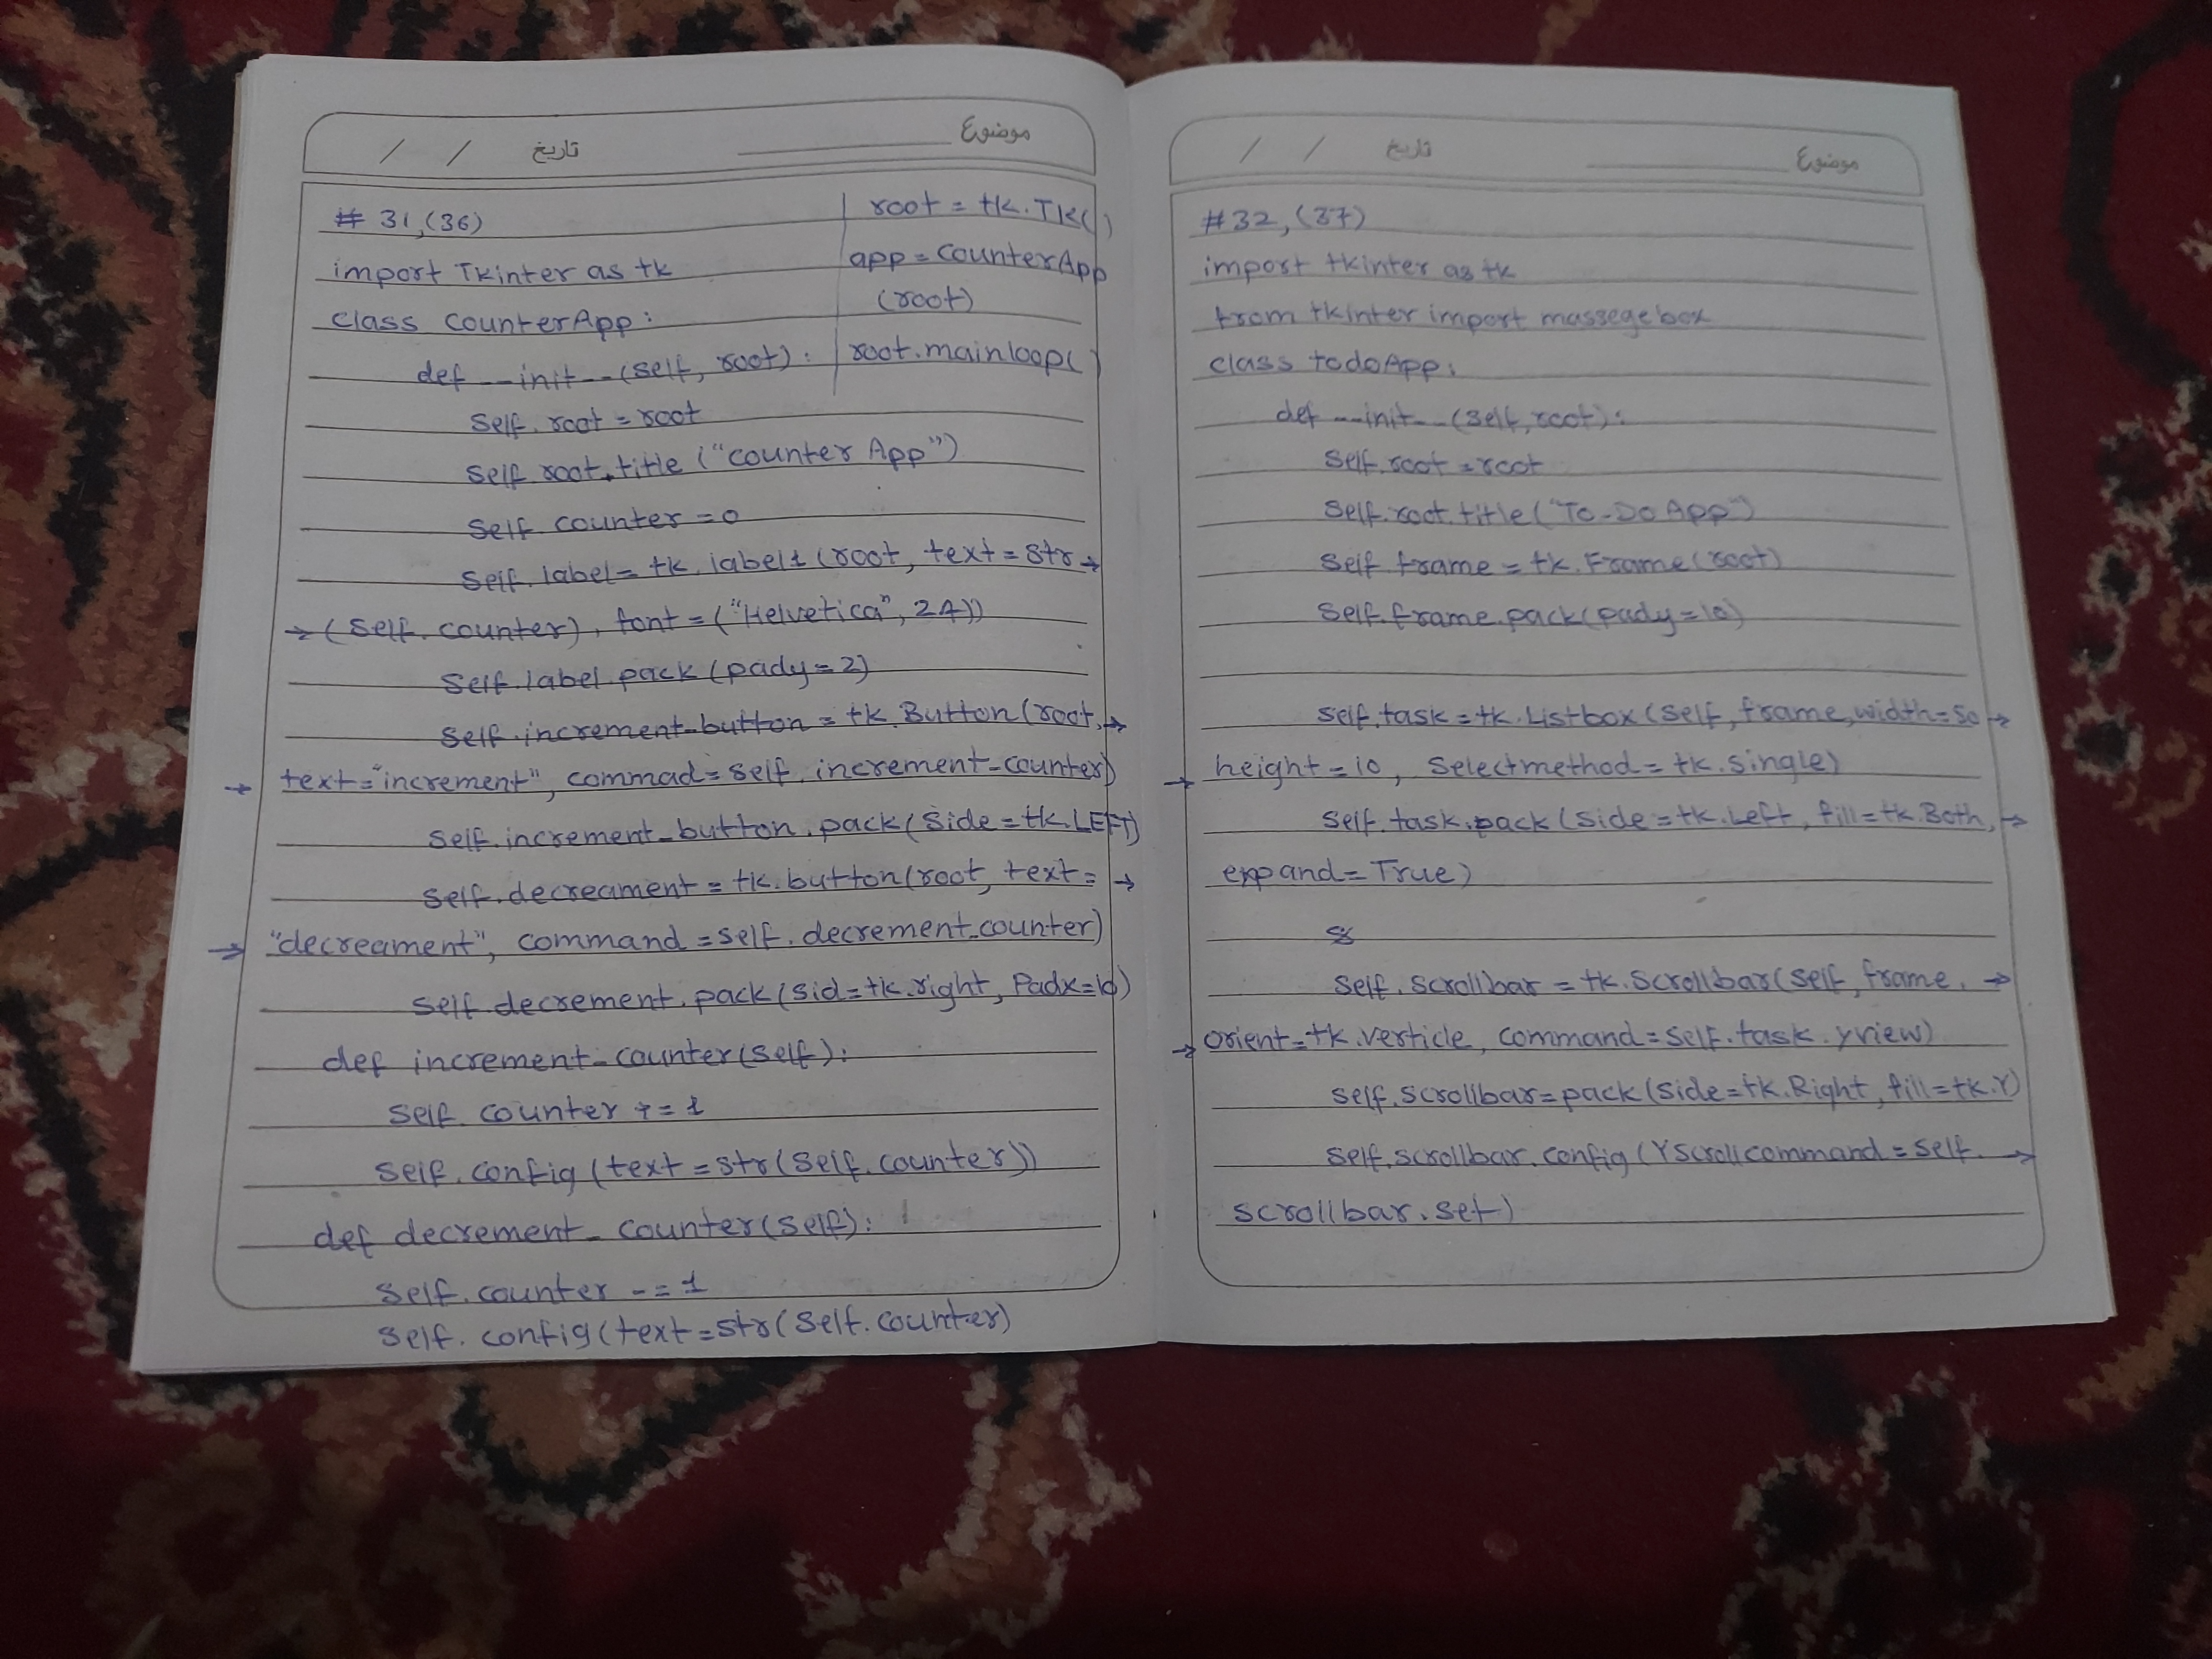 / / تاریخ
موضوع
# 31,(36)
import Tkinter as tk
class counterApp:
def __init__(self, root):
self.root = root
self root.title ("counter App")
self counter = 0
self label = tk.label1 (root, text = str →
→ (self.counter), font = ("Helvetica", 24))
self label pack (pady=2)
self increment-button = tk.Button (root, →
→ text = "increment", commad = self.increment-counter)
self increment_button.pack (side = tk.LEFT)
self.decreament = tk.button (root, text = →
→ "decreament", command = self.decrement-counter)
self decrement.pack (sid=tk.right, Padx=10)
def increment-counter (self):
self counter += 1
self.config (text = str (self.counter))
def decrement_counter (self):
self.counter -= 1
self.config (text = str (self.counter)
root = tk.Tk()
app = counterApp
(root)
root.mainloop()
/ / تاریخ
موضوع
#32,(37)
import tkinter as tk
from tkinter import massegebox
class todoApp:
def __init__ (self, root):
self.root = root
self.root.title ("To-Do App")
self frame = tk.Frame (root)
self.frame.pack (pady=10)
self.task = tk.Listbox (self, frame, width=50 →
→ height = 10, selectmethod = tk.single)
self.task.pack (side = tk.Left, fill = tk.Both, →
expand = True)
self.scrollbar = tk.Scrollbar (self, frame, →
→ orient = tk.verticle, command = self.task.yview)
self.scrollbar = pack (side = tk.Right, fill = tk.Y)
self.scrollbar.config (Yscrollcommand = self. →
scrollbar.set)